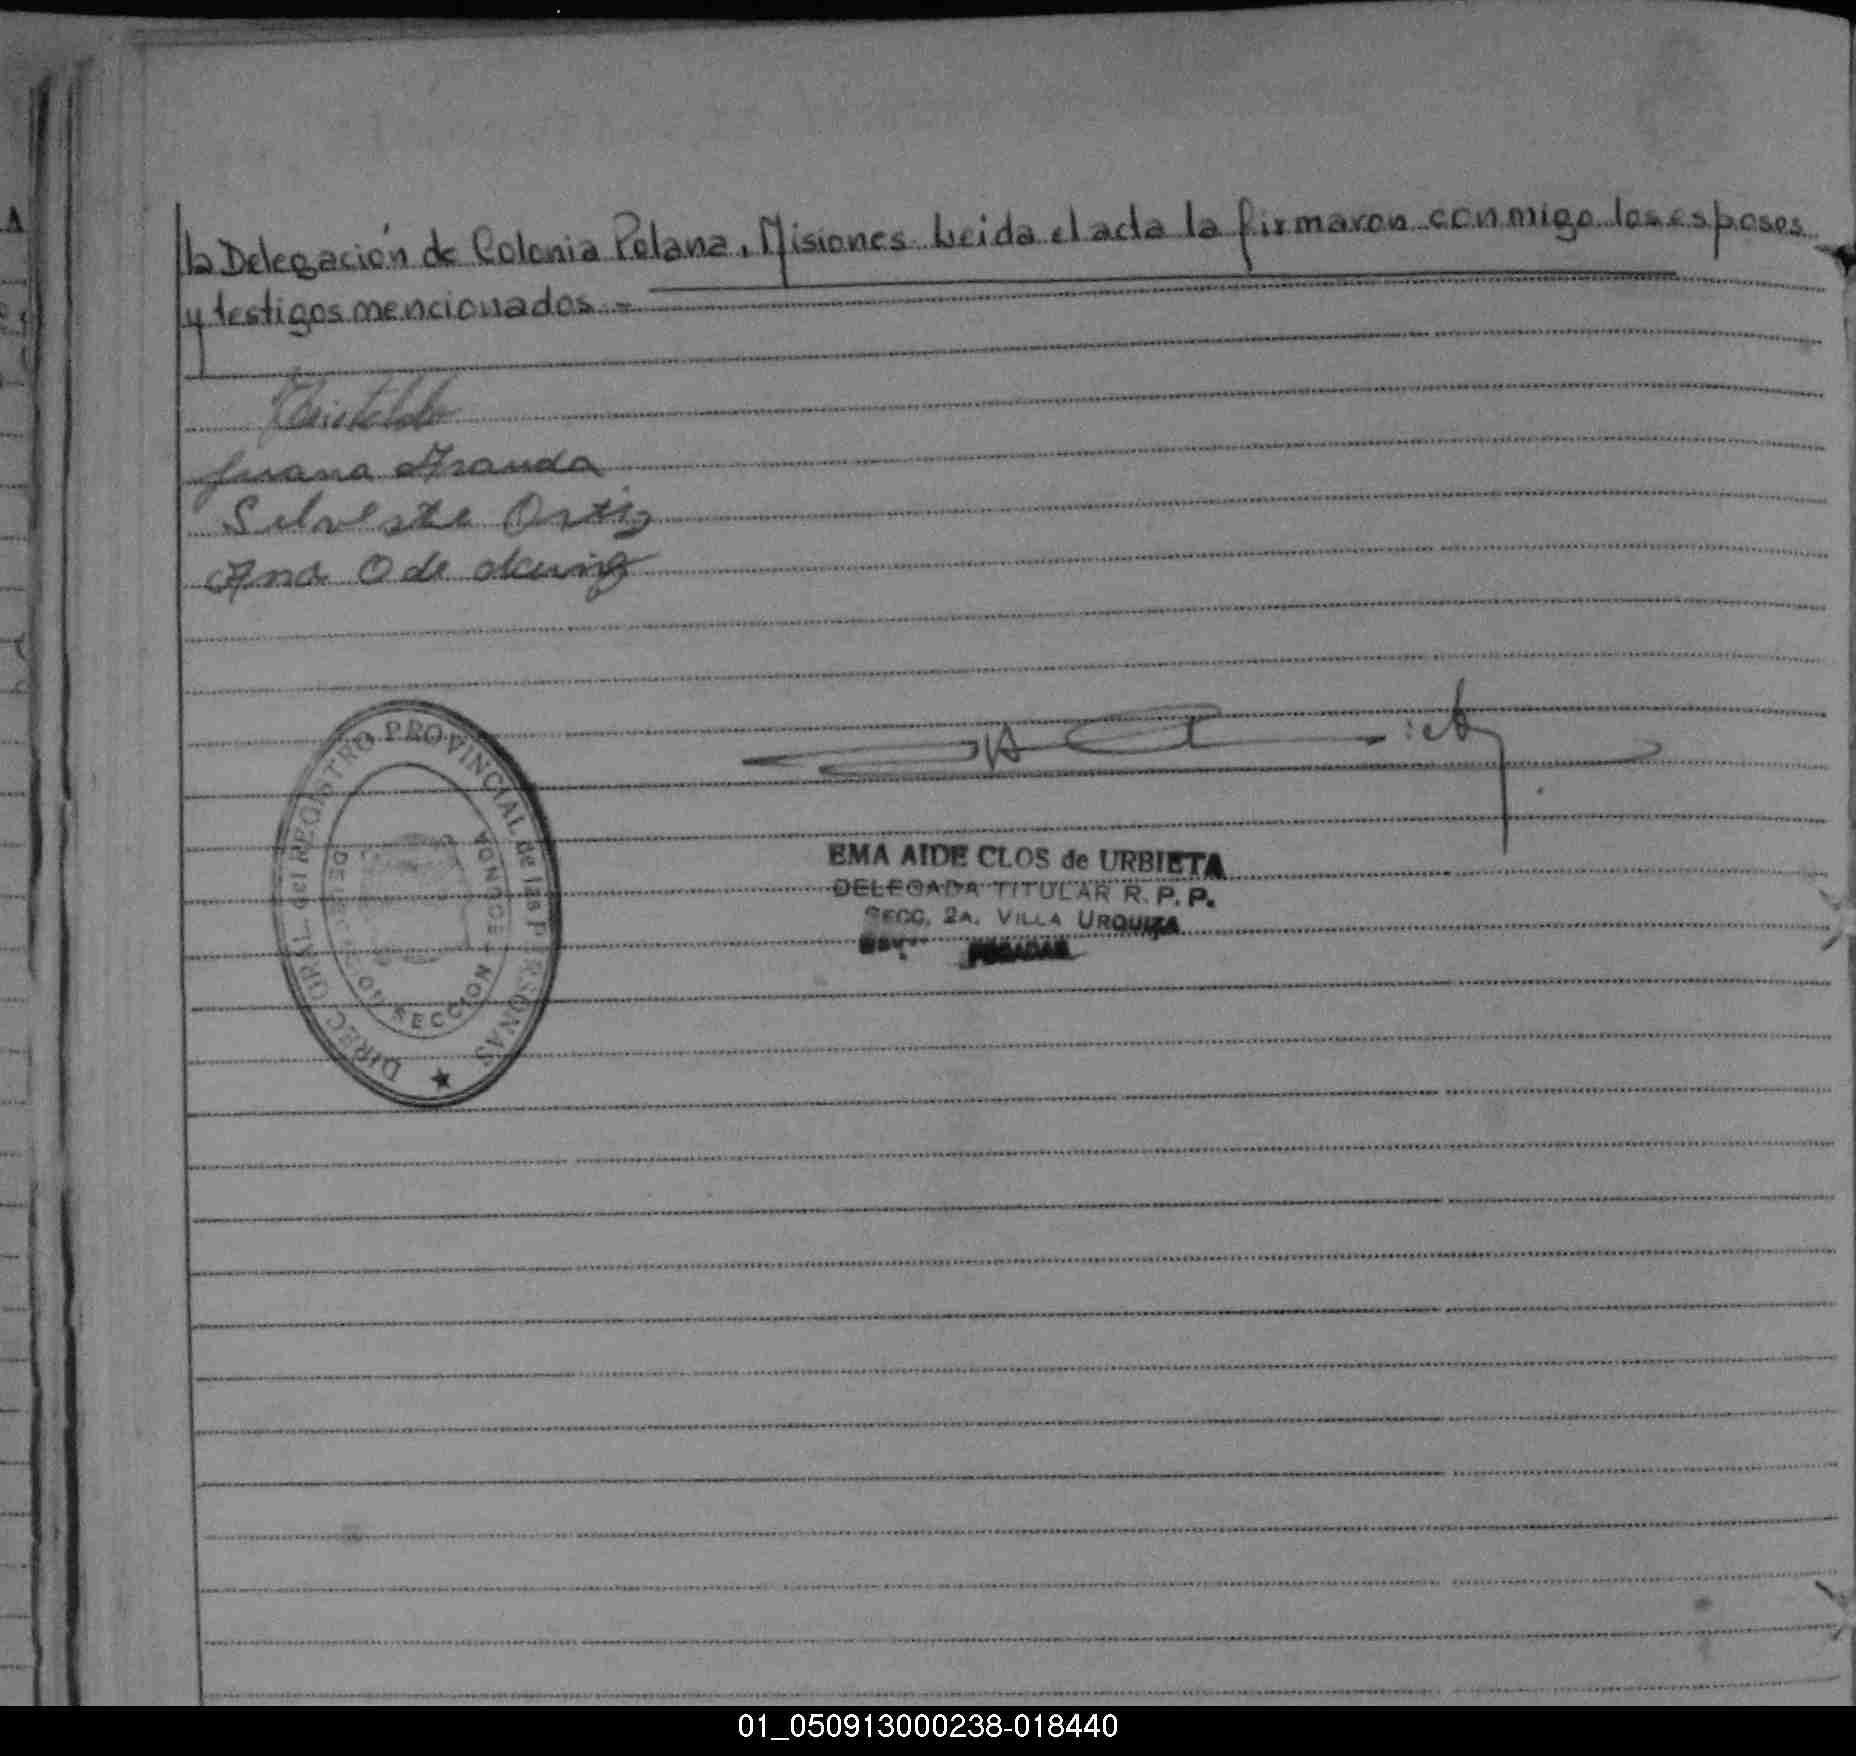 la Delegación de Colonia Polana, Misiones Leida el acta la firmaron conmigo los esposos
y testigos mencionados.-
Juana Aranda
Silveste Ortiz
Ana O de
DIREC. GRAL. del REGISTRO PROVINCIAL de las PERSONAS
SECCION SEGUNDA
EMA AIDE CLOS de URBIETA
DELEGADA TITULAR R. P. P.
SECC. 2A. VILLA URQUIZA
POSADAS
01_050913000238-018440